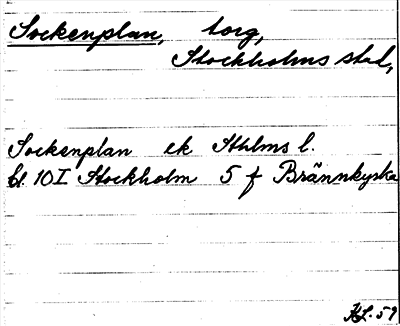 Sockenplan, torg,
Stockholms stad,
Sockenplan ek Sthlms l.
bl. 10I Stockholm 5 f Brännkyrka
KL. 59